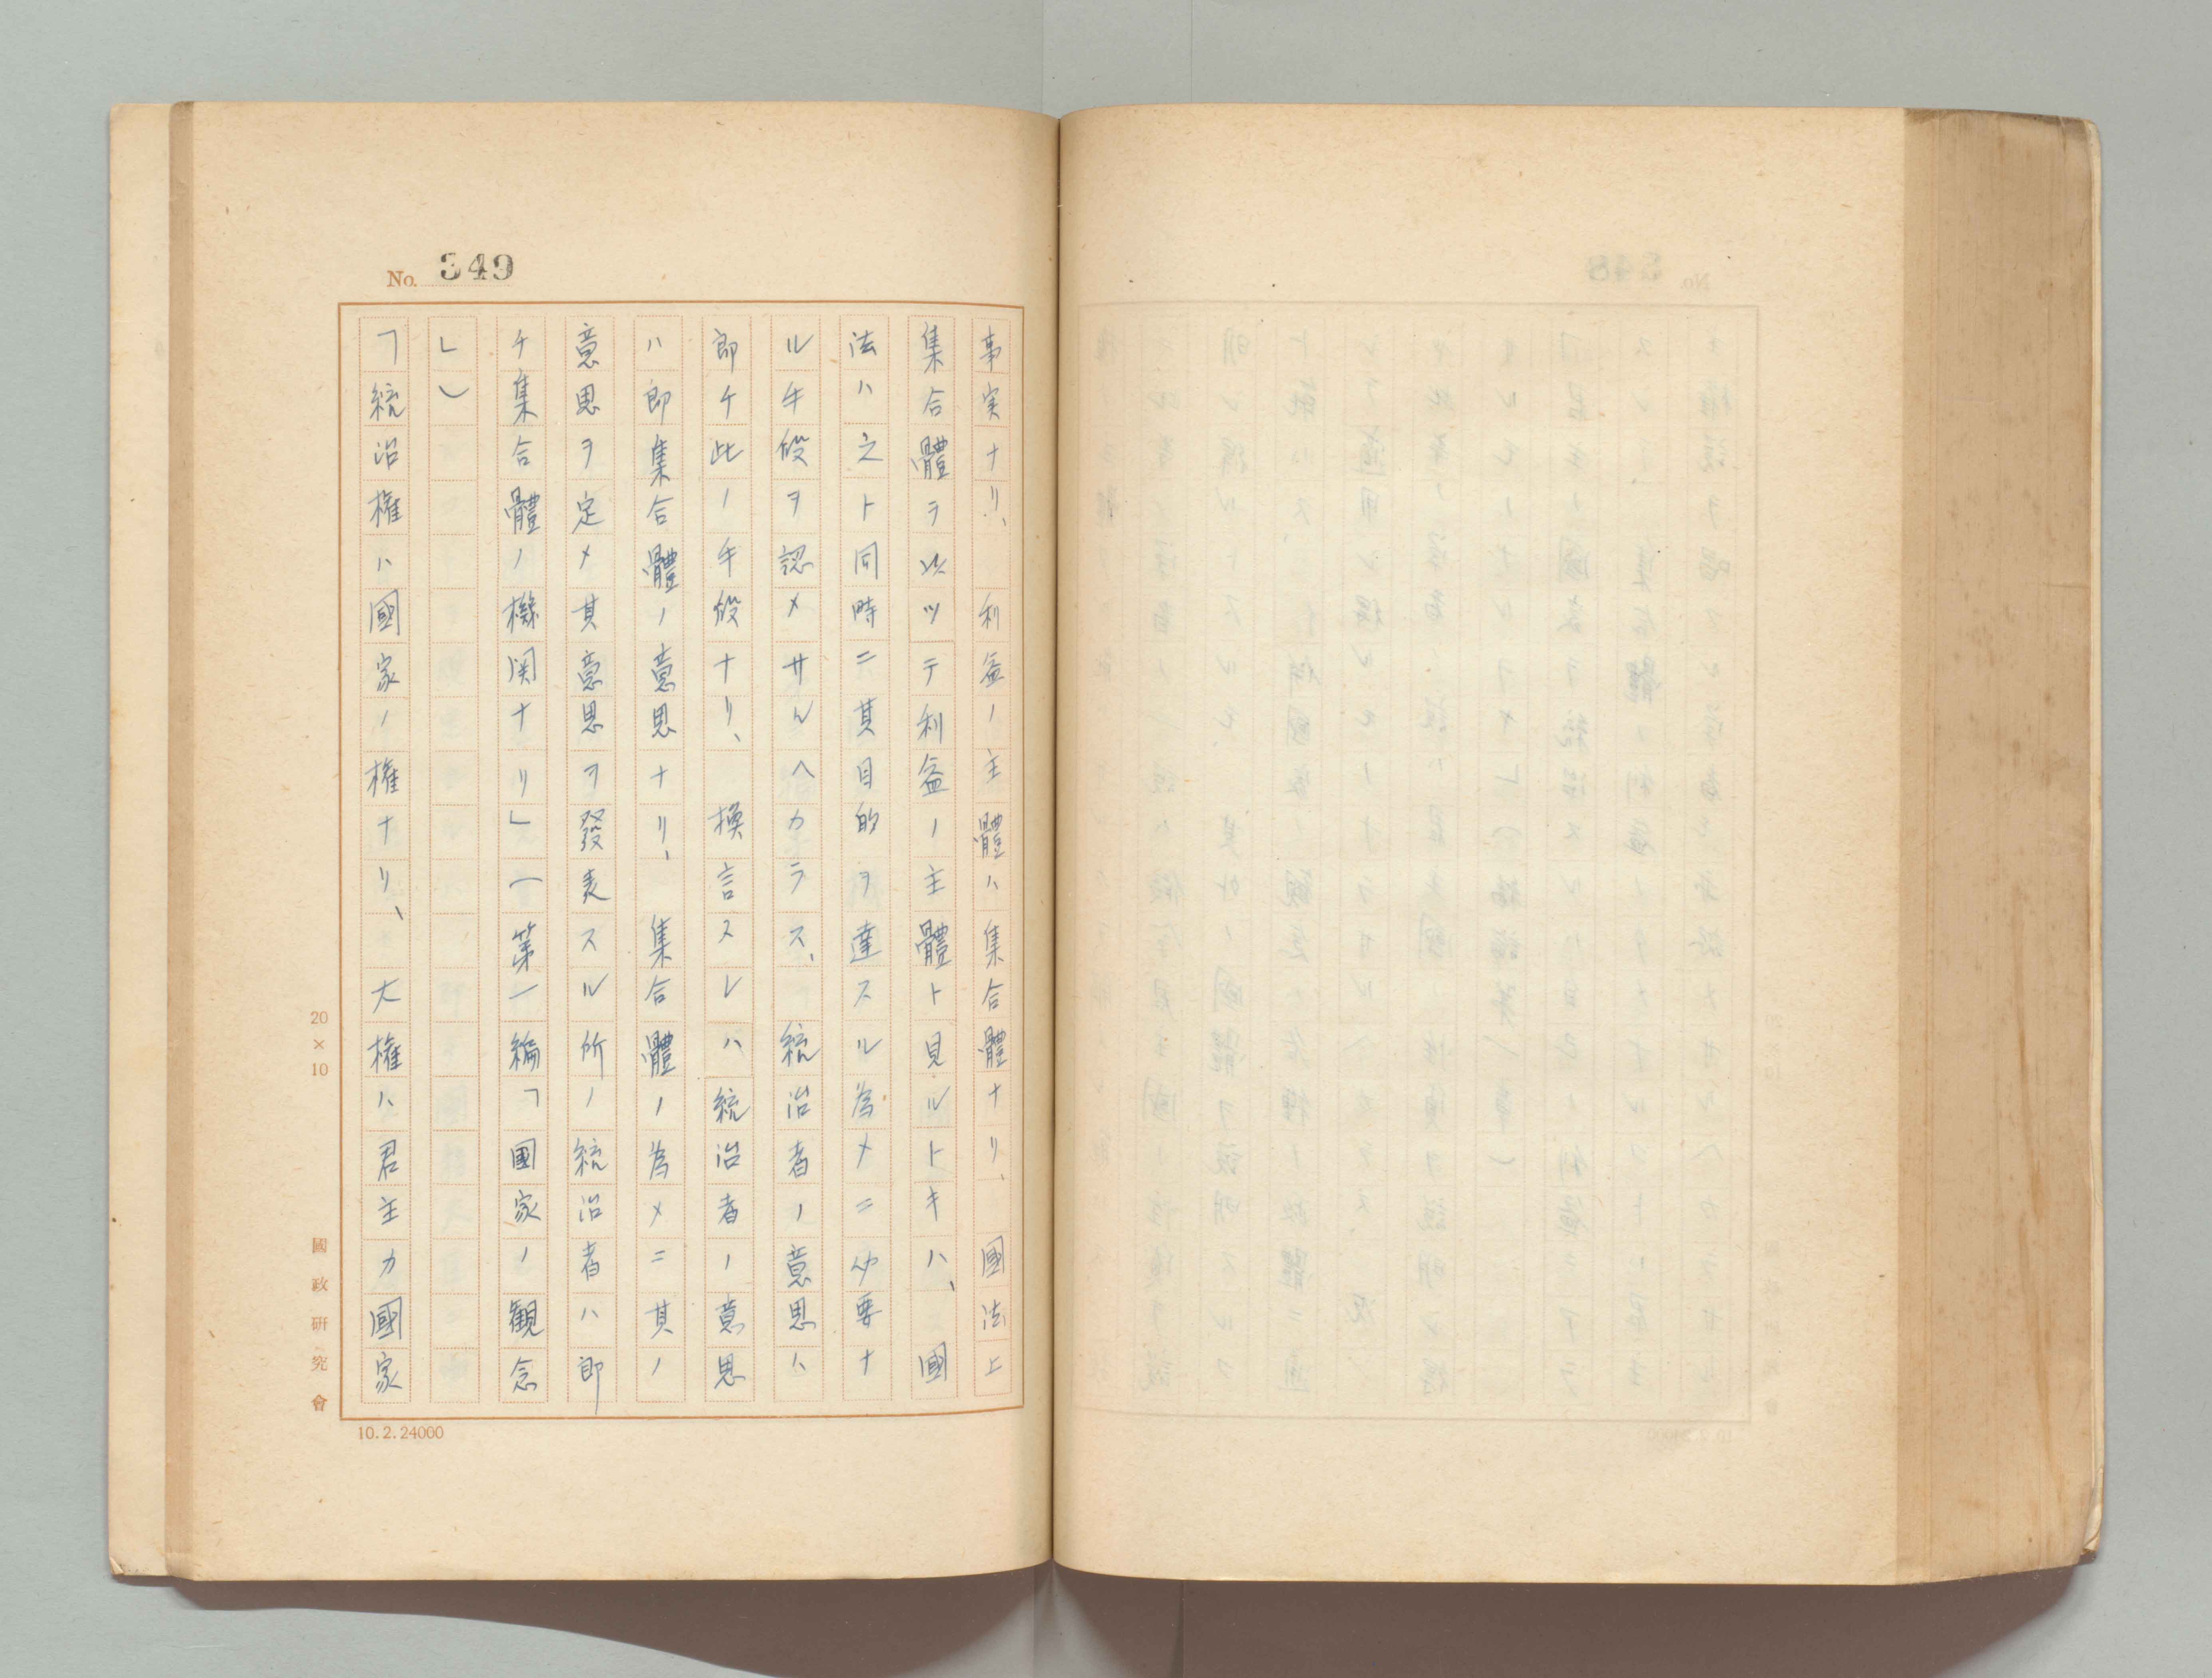 No. 349
事実ナリ、　利益ノ主體ハ集合體ナリ、　國法上
集合體ヲ以ツテ利益ノ主體ト見ルトキハ、　國
法ハ之ト同時ニ其目的ヲ達スル為メニ必要ナ
ル手段ヲ認メサルヘカラス、　統治者ノ意思ハ
即チ此ノ手段ナリ、　換言スレハ統治者ノ意思
ハ即集合體ノ意思ナリ、　集合體ノ為メニ其ノ
意思ヲ定メ其意思ヲ發表スル所ノ統治者ハ即
チ集合體ノ機関ナリ」（第一編「國家ノ観念
」）
「統治権ハ國家ノ権ナリ、　大権ハ君主カ國家
20×10
國政研究會
10.2.24000